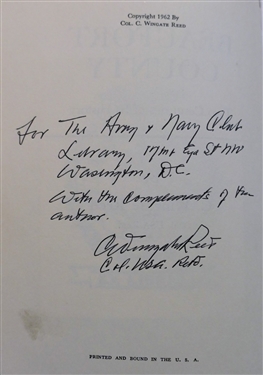 Copyright 1962 By
Col. C. Wingate Reed
for The Army & Navy Club
Library, 17th & Eye St NW
Washington, D.C.
With the complements of the
author.
CWingate Reed
Col. USA. Retd.
PRINTED AND BOUND IN THE U. S. A.